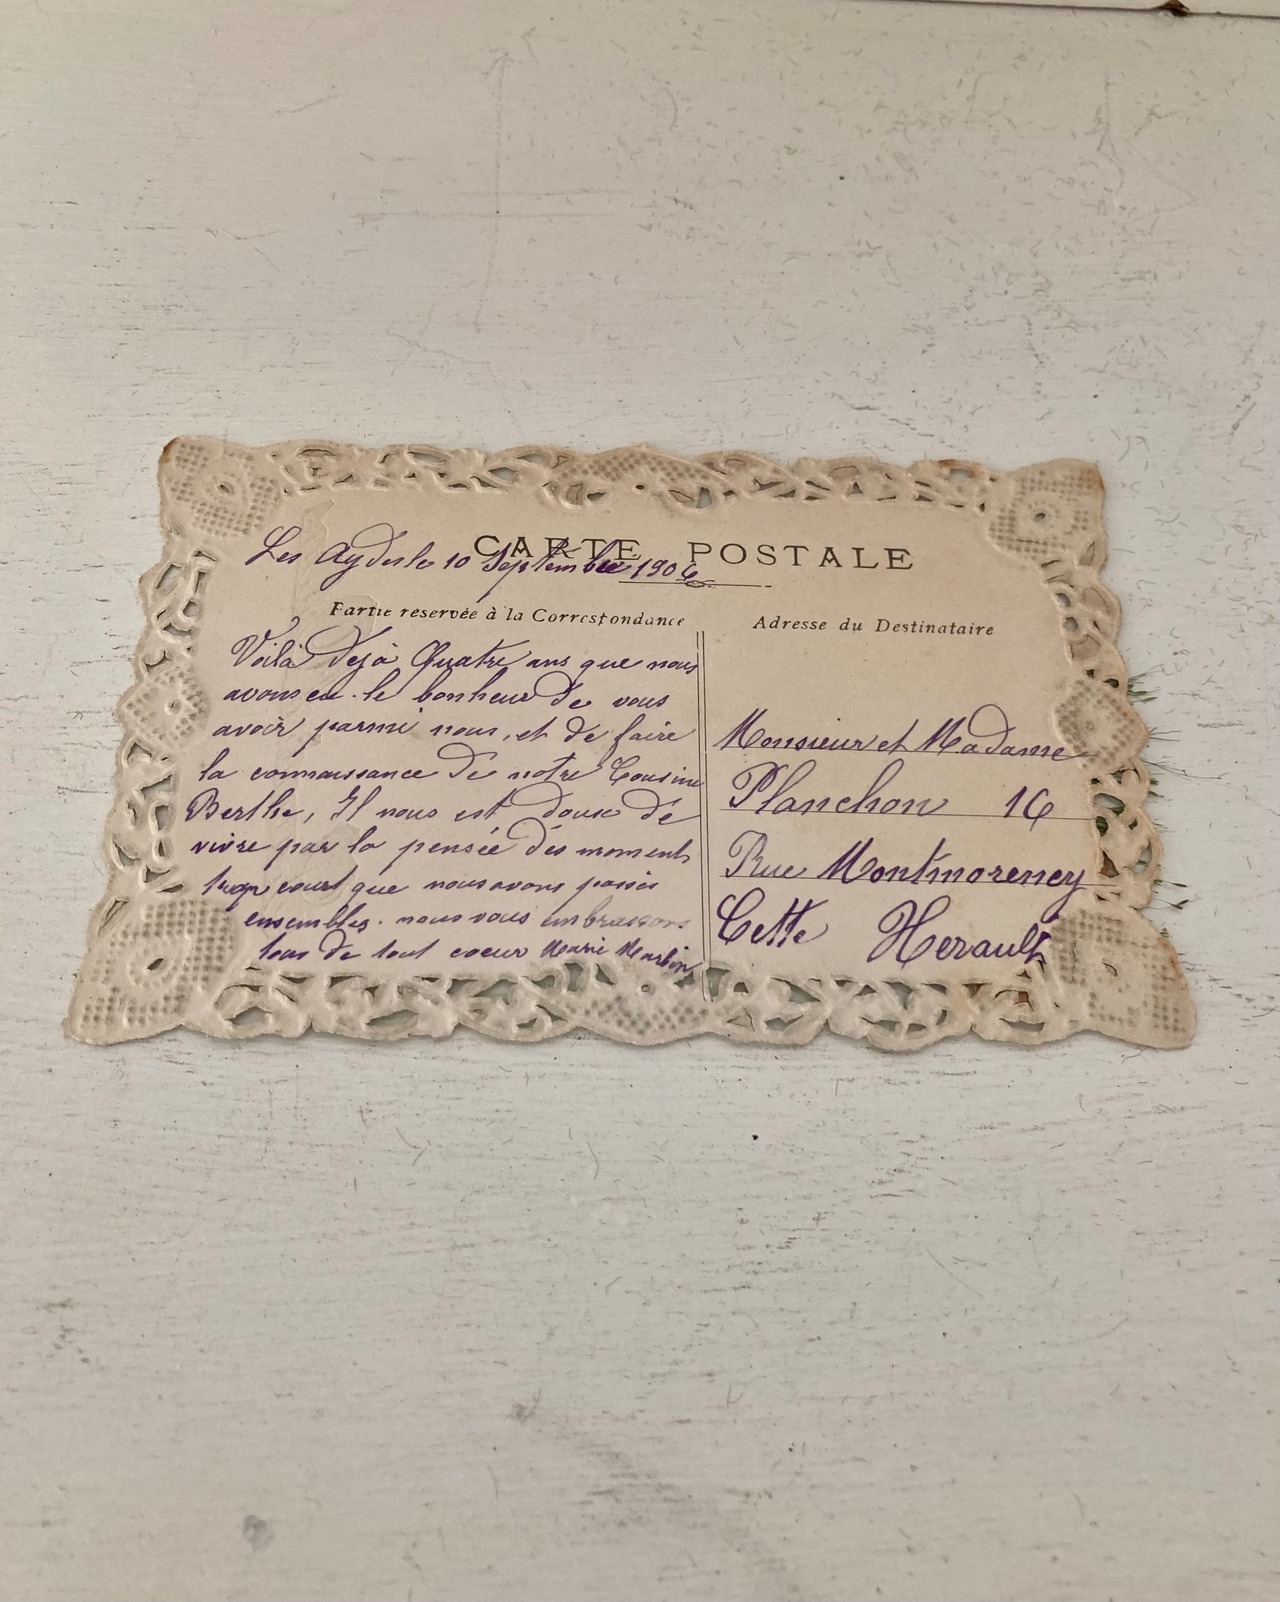 CARTE POSTALE
Les Ayderle 10 Septembre 1906
Partie réservée à la Correspondance
Adresse du Destinataire
Voilà déjà Quatre ans que nous
avons eu le bonheur de vous
avoir parmi nous, et de faire
la connaissance de notre Cousine
Berthe, Il nous est doux de
vivre par la pensée des moments
trop court que nous avons passés
ensembles. nous vous embrassons
tous de tout coeur Marie
Monsieur et Madame
Planchon 16
Rue Montmorency
Cette Herault